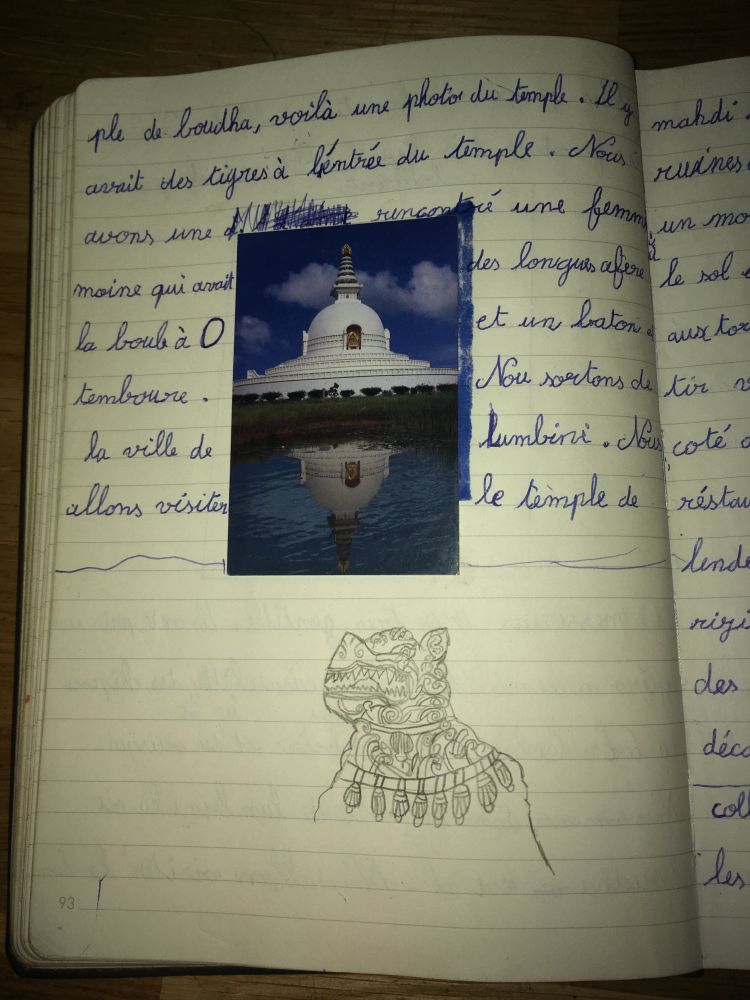 ple de boudha, voilà une photo du temple. Il y
avait des tigres à l'éntrée du temple. Nous
avons une rencontré une femme
moine qui avait des longues
la boub à O et un baton
temboure. Nou sortons de
la ville de lumbini. Nous
allons visiter le temple de
93
mahdi.
ruines
un mo
le sol
aux tor
tir
coté
réstau
lende
rizi
des
déco
coll
les